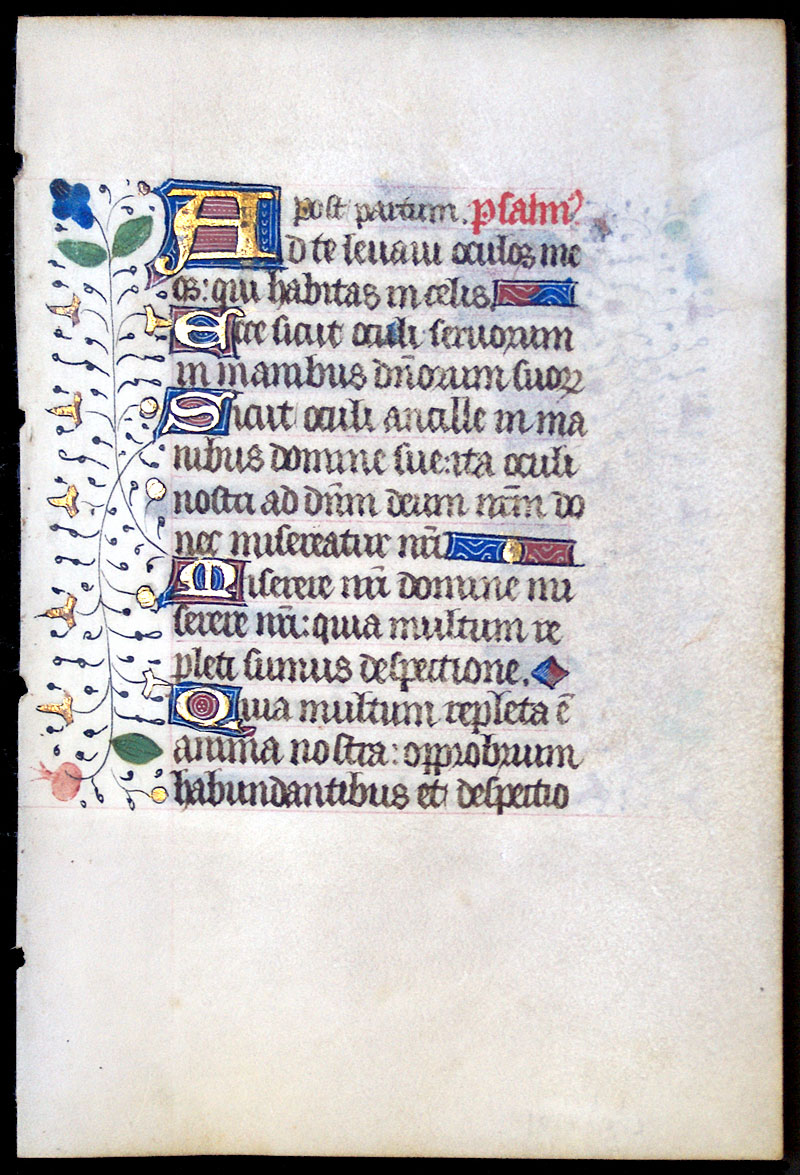 post partum. psalm᾿
Ad te leuaui oculos me
os: qui habitas in celis.
Ecce sicut oculi seruorum
in manibus dñorum suoꝝ
Sicut oculi ancille in ma
nibus domine sue: ita oculi
nostri ad dñm deum nr̄m do
nec misereatur nr̄i
Miserere nr̄i domine mi
serere nr̄i: quia multum re
pleti sumus despectione.
Quia multum repleta ē
anima nostra: opprobrium
habundantibus et despectio